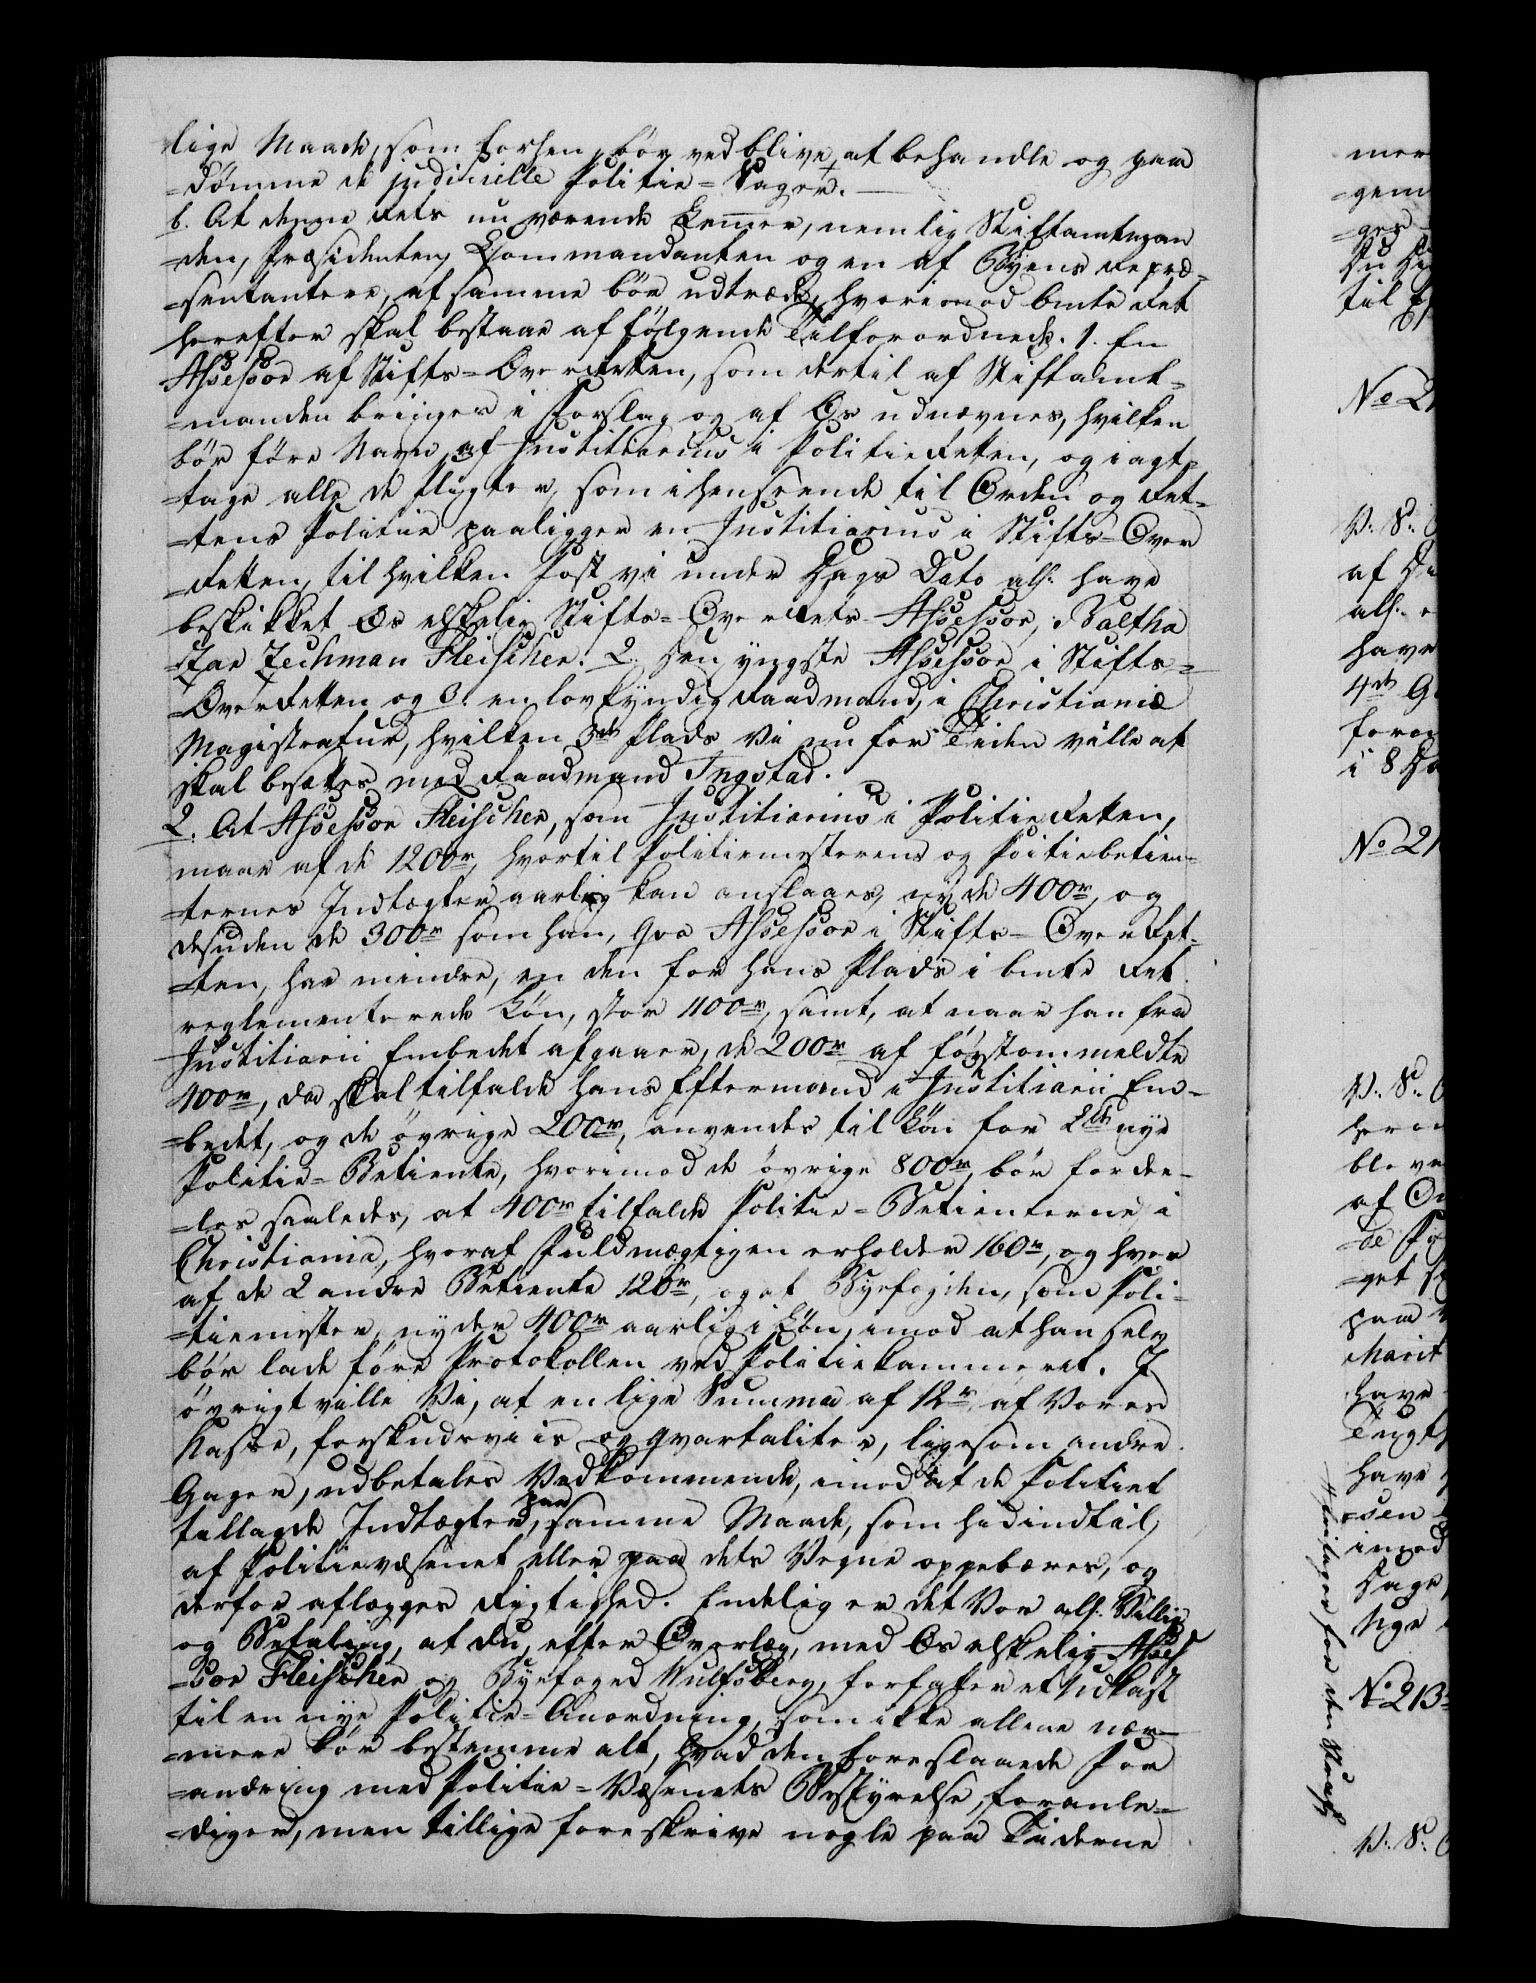 lige Maade, som forhen, bör ved blive, at behandle og paa
=dömme de judicielle Politie=Sager.
b. At denne Rets nu værende Lemer, nemlig Stiftamtman
=den, Præsidenten, Commandanten og en af Byens Repræ=
=sentantere, af samme bör udtræde, hvorimod bmte Ret
herefter skal bestaae af fölgende Tilforordnede. 1. En
Assessor af Stifts=Overretten, som dertil af Stiftamt=
=manden bringes i Forslag og af Os udnævnes, hvilken
bör före Navn af Justitiarius i Politieretten, og iagt=
=tage alle de Pligter, som i henseende til Orden og Ret=
=tens Politie paaligger en Justitiarius i Stifts=Over
=Retten, til hvilken Post vi under Dags Dato alln. have
beskikket Os elskelig Stifts=Overrets=Assessor, Baltha
=zar Zechman Fleischer. 2. den yngste Assessor i Stifts=
=OverRetten og 3. en lovkyndig Raadmand, i Christianiæ
Magistratur, hvilken 3de Plads Vi nu for Tiden ville at
skal besættes med Raadmand Ingstad.
2. At Assessor Fleischer, som Justitiarius i PolitieRetten,
maae af de 1200r, hvortil Politiemesterens og Poitiebetien=
=ternes Indtægter aarlig kan anslaaes, nyde 400r, og
desuden de 300r som han, qva Assessor i Stifts=OverRet=
=ten, har mindre, en den for hans Plads i bmte Ret
reglementerede Lön, stor 1100r, samt, at naar han fra
Justitiarii Embedet afgaaer, de 200r af förstommeldte
400r, da skal tilfalde hans Eftermand i Justitiarii Em=
=bedet, og de övrige 200r, anvendes til Lön for 2de nye
Politie=Betiente, hvorimod de övrige 800r, bör forde=
=les saaledes, at 400r tilfalde Politie=Betienterne i
Christiania, hvoraf Fuldmægtigen erholder 160r, og hver
af de 2 andre Betiente 120r, og at Byefogden, som Poli=
=tiemester, nyder 400r aarlig i Lön, imod at han selv
bör lade före Protokollen ved Politiekammeret. I
övrigt ville Vi, at en lige Summa af 12r af Vores
Kasse, forskudsviis og qvartaliter, ligesom andre
Gager, udbetales Vedkommende, imod at de Politiet
tillagde Indtægter, paa samme Maade, som hidindtil,
af Politievæsenet eller paa dets Vegne oppebæres, og
derfor aflægges Rigtighed. Endelig er det Vor alln. Villie
og Befaling, at du, efter Overlæg, med Os elskelig Asses
=sor Fleischer og Byefoged Wulfsberg, forfatter et Udkast
til en nye Politie=Anordning, som ikke allene nær=
=mere bör bestemme alt, hvad den foreslaaede For
=andring med Politie=Væsenets Bestyrelse, foranle=
=diger, men tillige foreskrive nogle paa Tiderne
mere
=gem
=ger
til
No 21
V. S.
af
have
4de
i 8
No 21
V. S.
ble ve
af
get
paa
Marit
have
Tugt
have
=sen
imod
Dage
No 213
V. S.